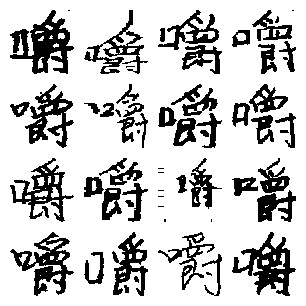 嚼嚼嚼嚼
嚼嚼嚼嚼
嚼嚼嚼嚼
嚼嚼嚼嚼